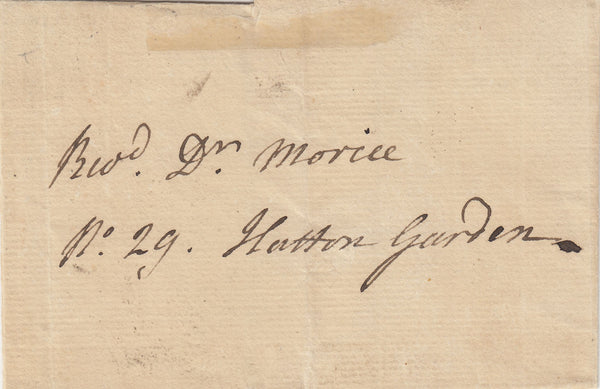 Revd. Dr. Morice
No. 29. Hatton Garden